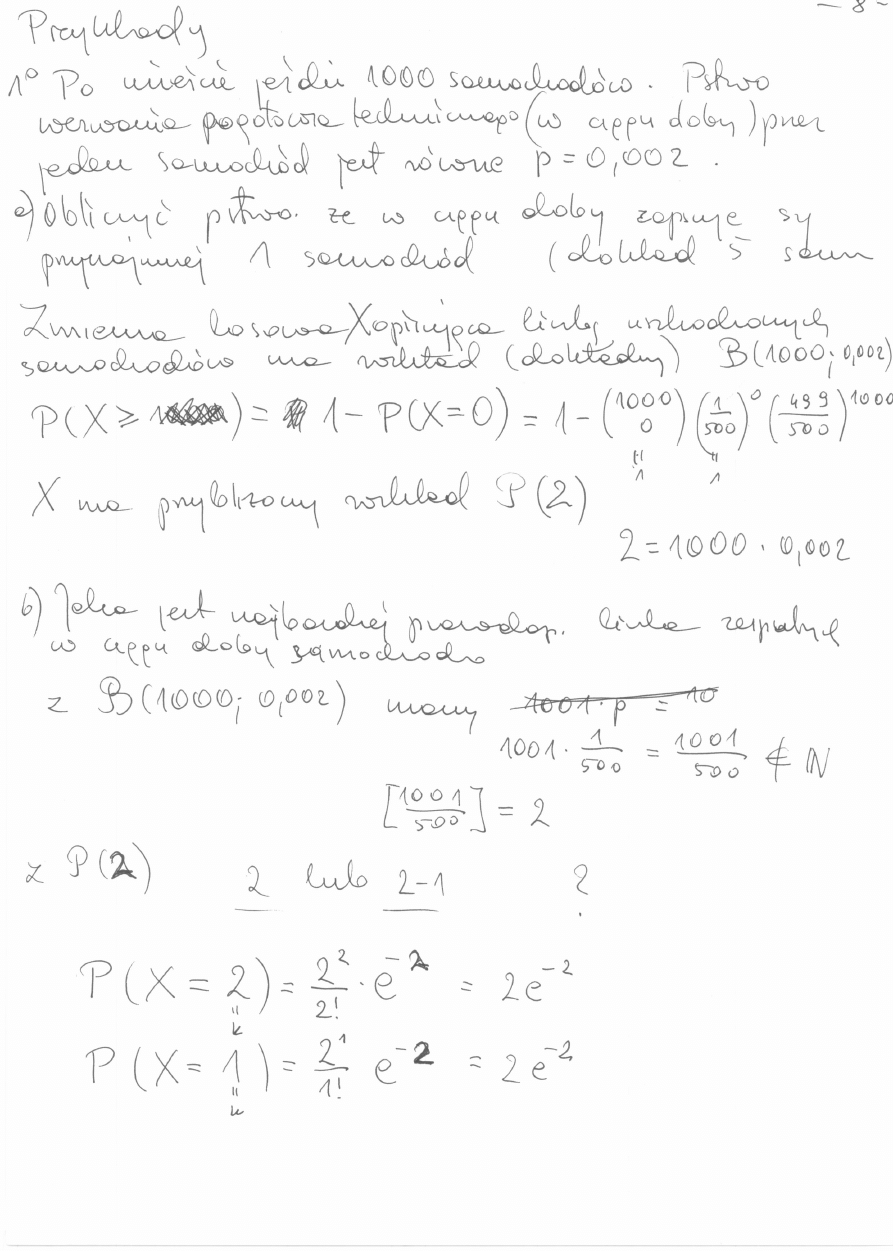 - 8 -
Przykłady
1° Po mieście jeździ 1000 samochodów. Pstwo
wezwania pogotowia technicznego (w ciągu doby) przez
jeden samochód jest równe p = 0,002.
a) Obliczyć pstwo. że w ciągu doby zepsuje się
przynajmniej 1 samochód (dokład 5 sam
Zmienna losowa X opisująca liczbę uszkodzonych
samochodów ma rozkład (dokładny) B(1000; 0,002)
P(X ≥ 1) = 1 - P(X=0) = 1 - (1000 0) (1/500)^0 (499/500)^1000
" 1 " 1
X ma przybliżony rozkład P(2)
2 = 1000 · 0,002
b) Jaka jest najbardziej prawdop. liczba zepsutych
w ciągu doby samochodów
z B(1000; 0,002) mamy 1001 · p = 10
1001 · 1/500 = 1001/500 ∉ ℕ
[1001/500] = 2
z P(2) 2 lub 2-1 ?
P(X = 2) = 2^2/2! · e^-2 = 2e^-2
" k
P(X = 1) = 2^1/1! e^-2 = 2e^-2
" k